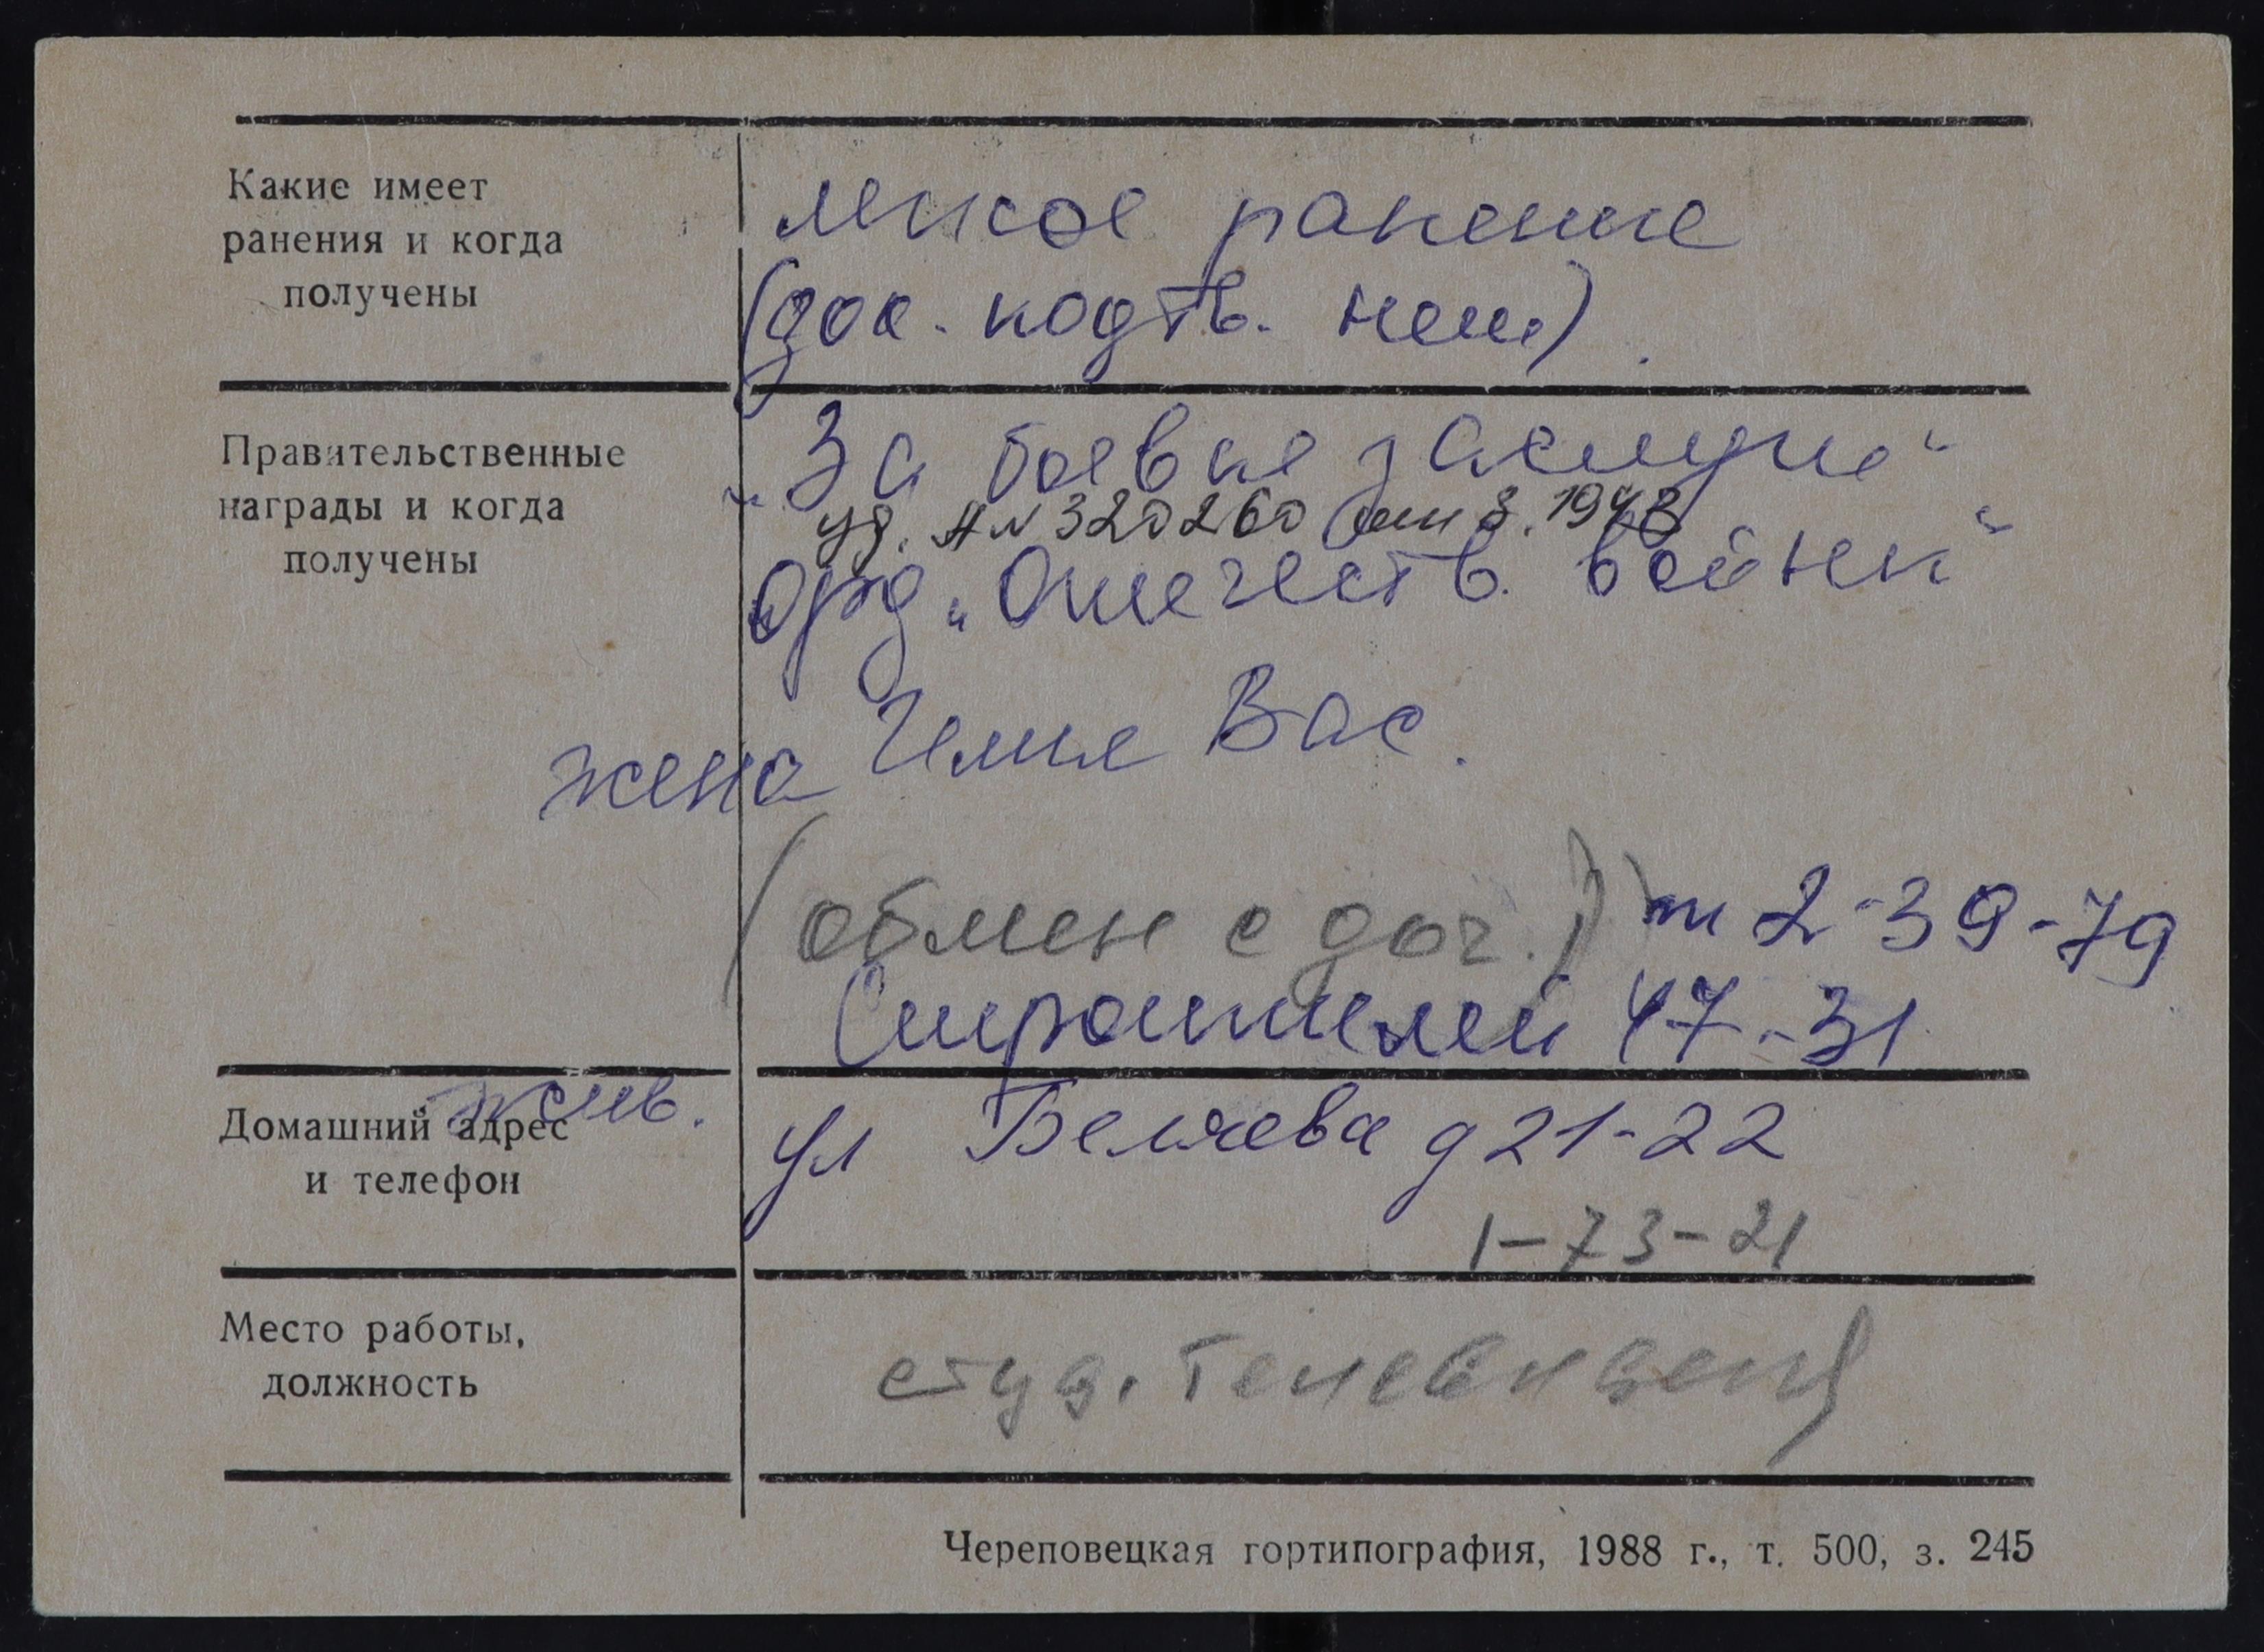 Какие имеет
ранения и когда
получены
легкое ранение
(док. подтв. нет).
Правительственные
награды и когда
получены
„За боевые заслуги“
уд. А № 320260 от 8. 1948
Орд. „Отечеств. войны“
жена Юлия Вас.
(обмен с доч.) т 2-39-79
Строителей 47-31
Домашний адрес
и телефон
жив.
ул Беляева д 21-22
1-73-21
Место работы,
должность
студ.
Череповецкая гортипография, 1988 г., т. 500, з. 245